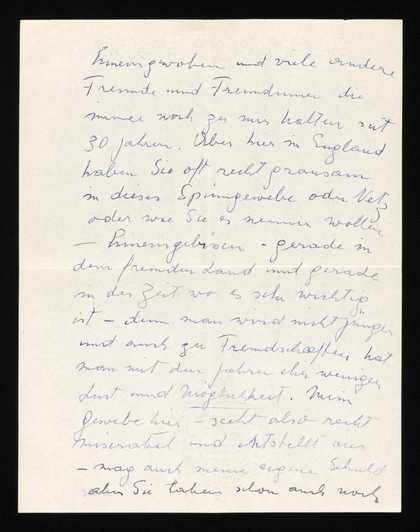 hineingewoben und viele andere
Freunde und Freundinnen die
immer noch zu mir halten seit
30 Jahren. Aber hier in England
haben Sie oft recht grausam
in dieses Spinngewebe oder Netz
oder wie Sie es nennen wollen
– hineingebissen – gerade in
dem fremden Land und gerade
in der Zeit wo es sehr wichtig
ist – denn man wird nicht jünger
und auch zu Freundschaften hat
man mit den Jahren eher weniger
Lust und Möglichkeit. Mein
gewebe hier – sieht also recht
miserabel und entstellt aus
– mag auch meine eigene Schuld
aber Sie haben schon auch noch